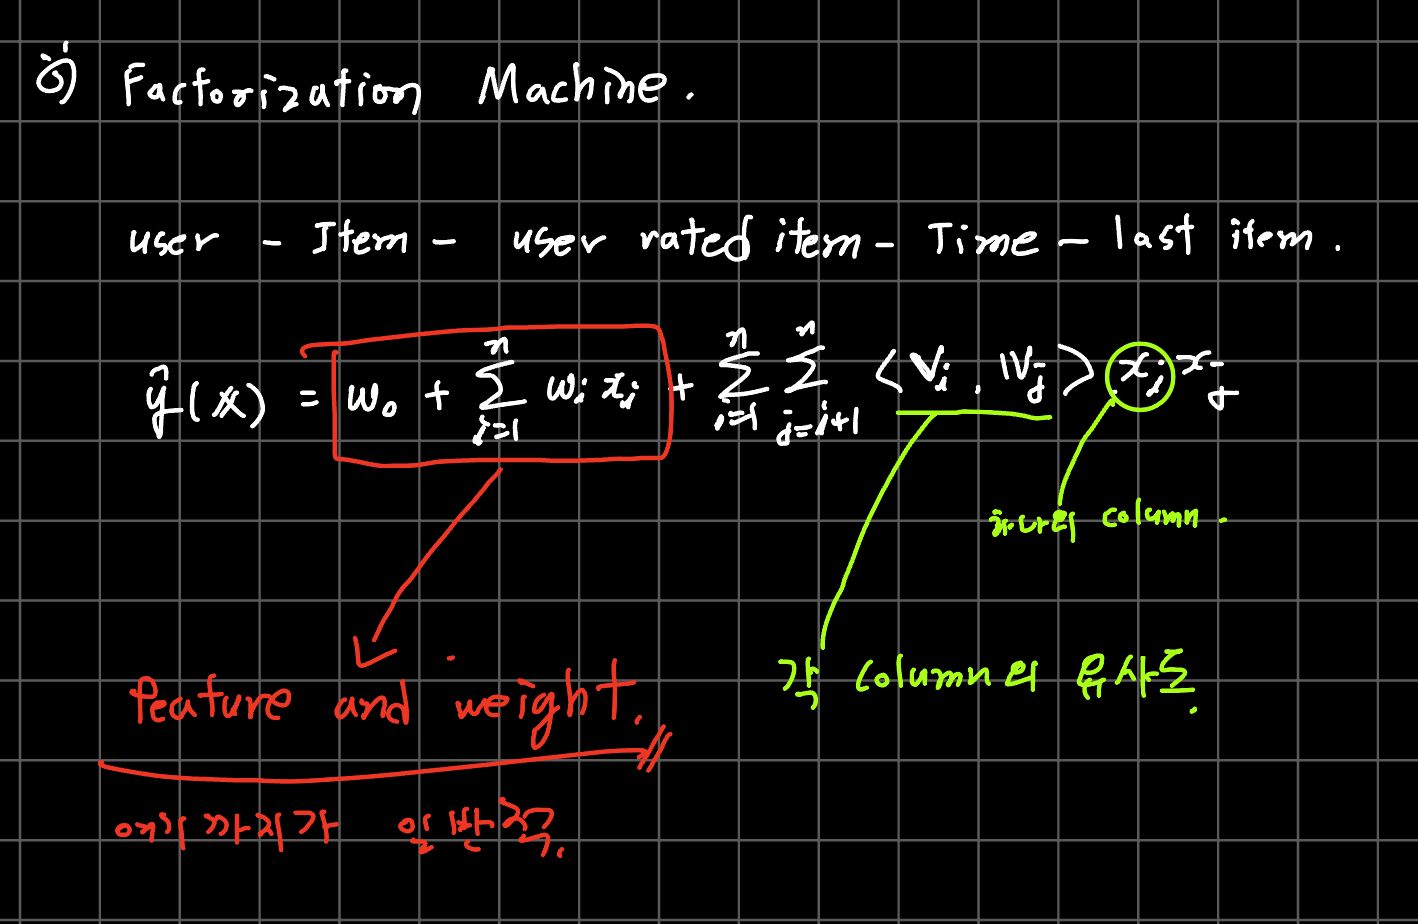 Factorization Machine.
user - Item - user rated item - Time - last item.
ŷ(x) = w₀ + Σ_{i=1}^{n} wᵢ xᵢ + Σ_{i=1}^{n} Σ_{j=i+1}^{n} ⟨Vᵢ, Vⱼ⟩ xᵢ xⱼ
하나의 column.
각 column의 유사도.
feature and weight.
여기 까지가 일반적.